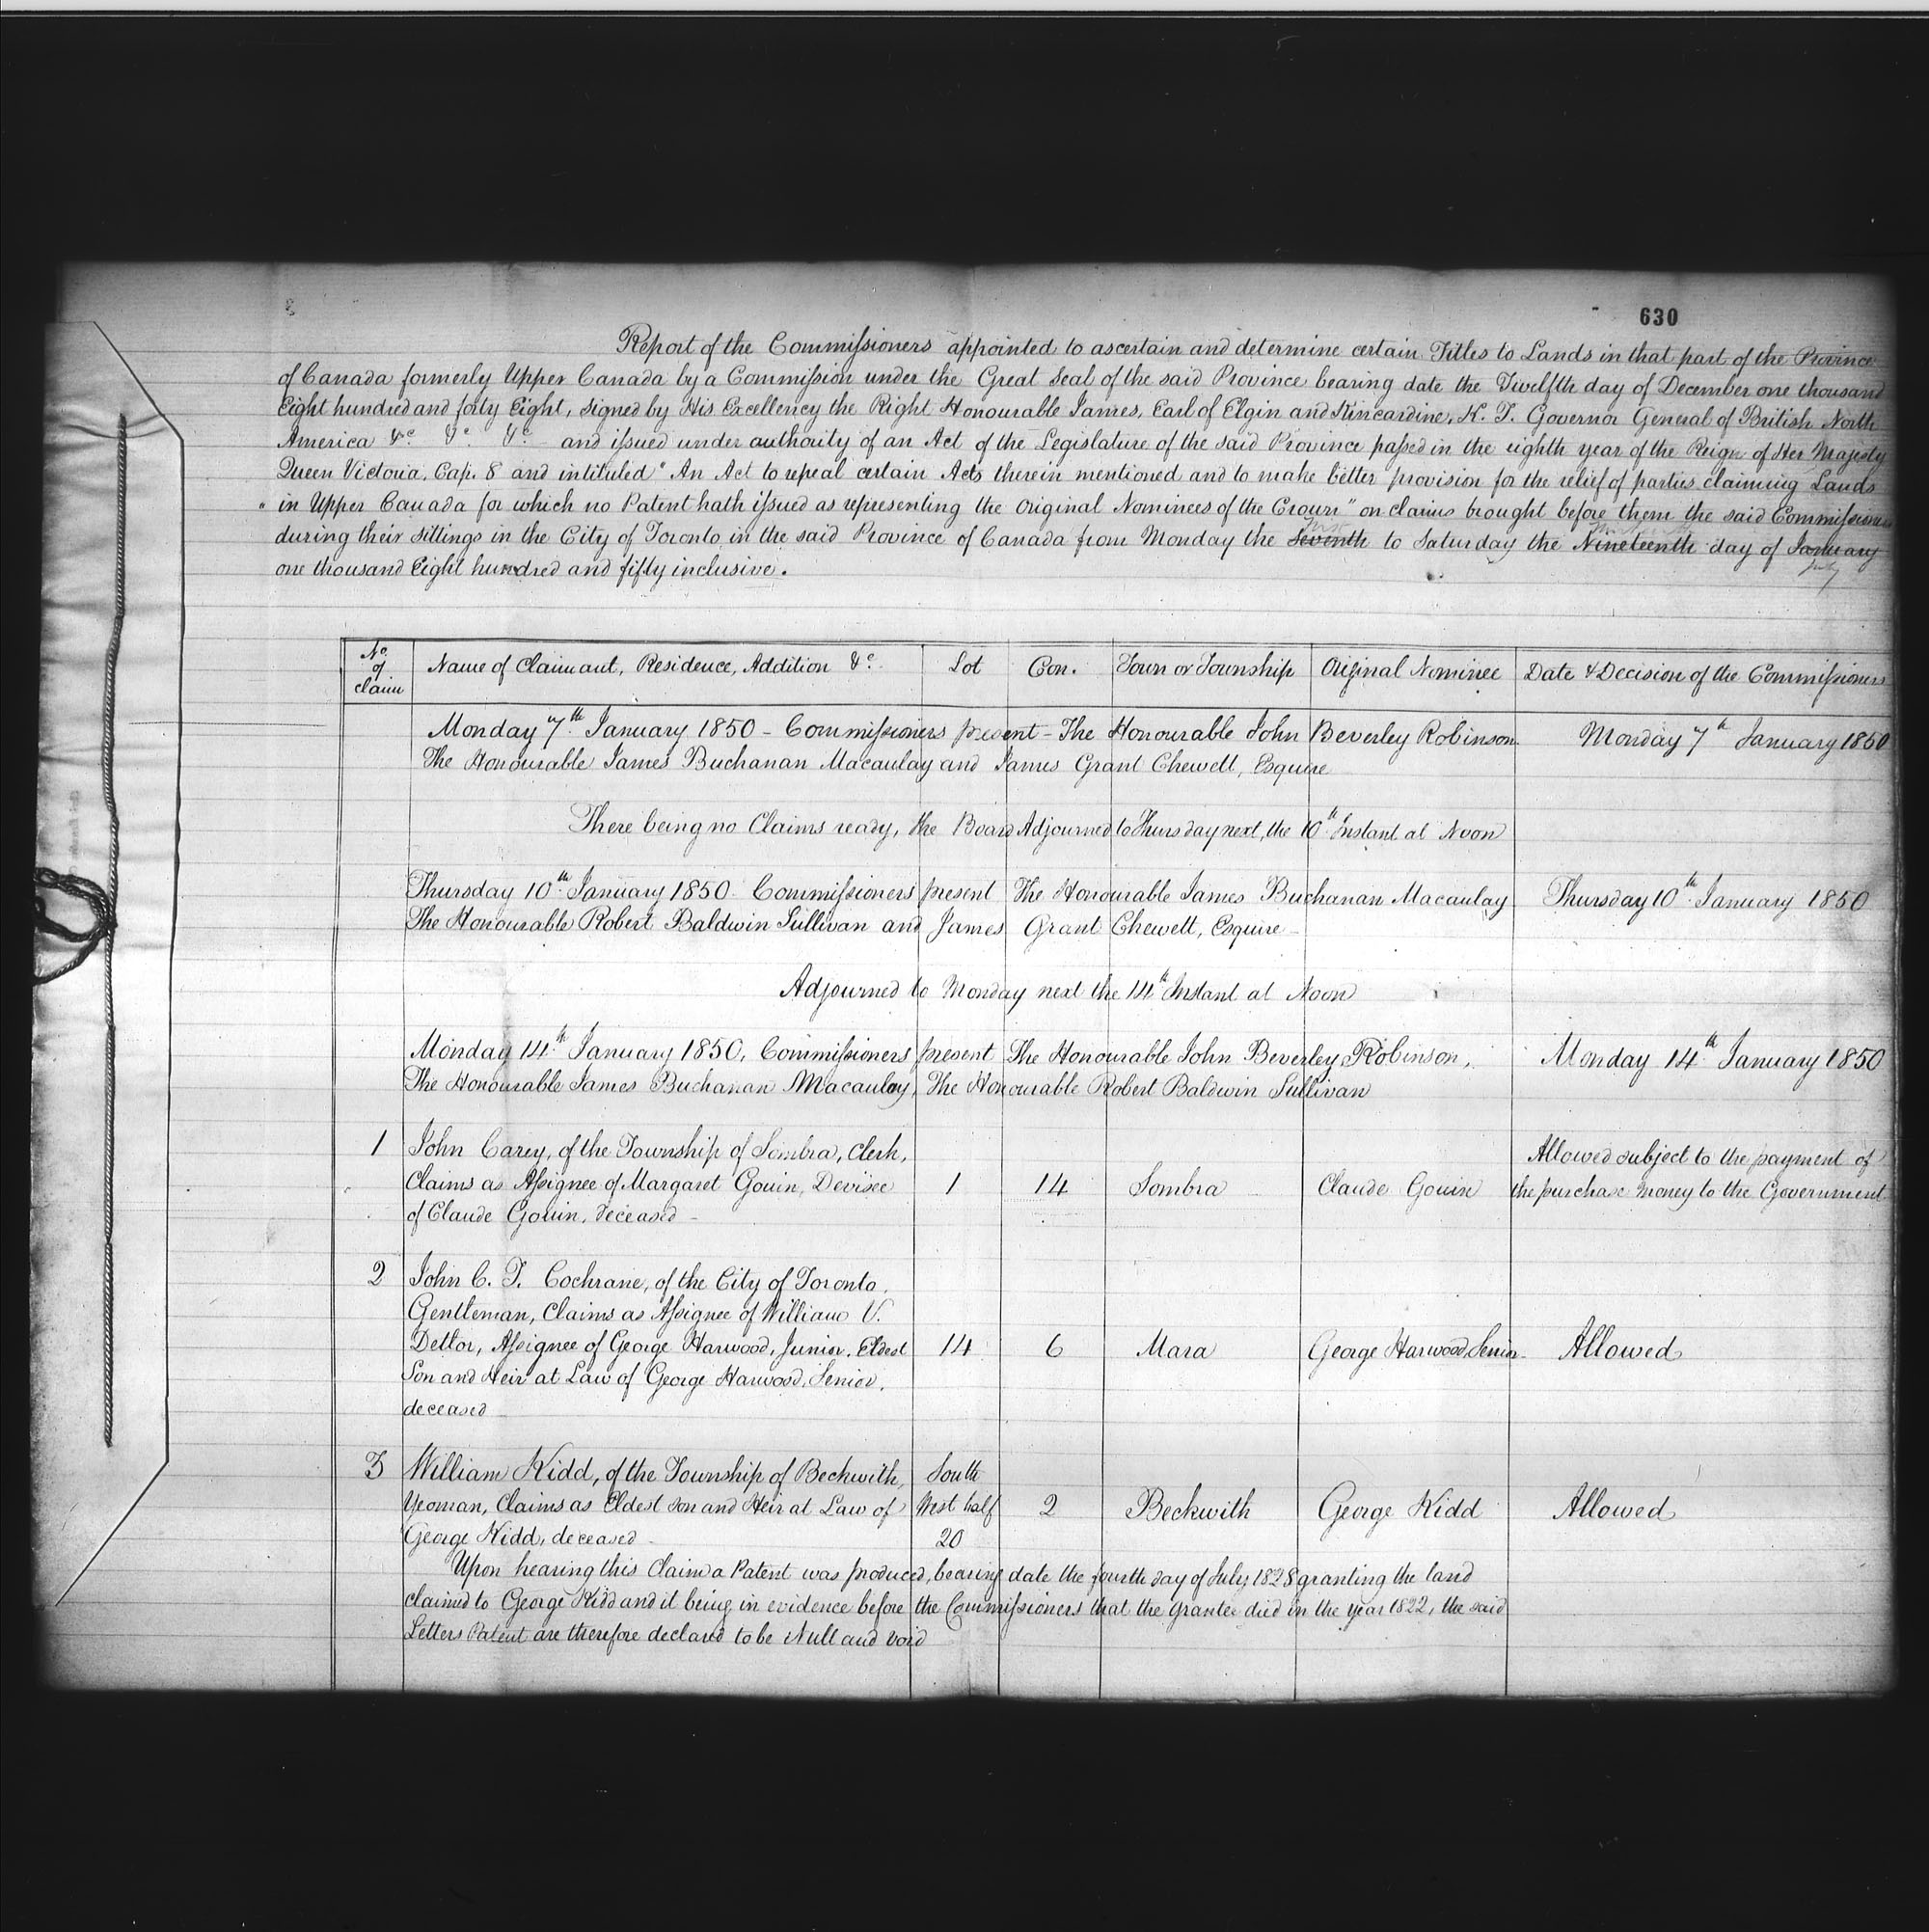 630
Report of the Commissioners appointed to ascertain and determine certain Titles to Lands in that part of the Province
of Canada formerly Upper Canada by a Commission under the Great Seal of the said Province bearing date the Twelfth day of December one thousand
Eight hundred and forty Eight, signed by His Excellency the Right Honourable James, Earl of Elgin and Kincardine, K. T. Governor General of British North
America &c &c &c and issued under authority of an Act of the Legislature of the said Province passed in the eighth year of the Reign of Her Majesty
Queen Victoria, Cap. 8 and intituled "An Act to repeal certain Acts therein mentioned and to make better provision for the relief of parties claiming Lands
" in Upper Canada for which no Patent hath issued as representing the Original Nominees of the Crown" on claims brought before them the said Commissioners
during their sittings in the City of Toronto in the said Province of Canada from Monday the Seventh to Saturday the Nineteenth day of January
July
one thousand Eight hundred and fifty inclusive.
No. of claim | Name of Claimant, Residence, Addition &c. | Lot | Con. | Town or Township | Original Nominee | Date & Decision of the Commissioners
Monday 7th January 1850 - Commissioners present - The Honourable John Beverley Robinson | Monday 7th January 1850
The Honourable James Buchanan Macaulay and James Grant Chewett, Esquire
There being no Claims ready, the Board Adjourned to Thursday next, the 10th Instant at Noon
Thursday 10th January 1850 Commissioners present The Honourable James Buchanan Macaulay | Thursday 10th January 1850
The Honourable Robert Baldwin Sullivan and James Grant Chewett, Esquire -
Adjourned to Monday next the 14th Instant at Noon
Monday 14th January 1850, Commissioners present The Honourable John Beverley Robinson, | Monday 14th January 1850
The Honourable James Buchanan Macaulay, The Honourable Robert Baldwin Sullivan
1 | John Carey, of the Township of Sombra, Clerk, | Allowed subject to the payment of
Claims as Assignee of Margaret Gouin, Devisee | 1 | 14 | Sombra | Claude Gouin | the purchase money to the Government
of Claude Gouin, deceased -
2 | John C. T. Cochrane, of the City of Toronto,
Gentleman, Claims as Assignee of William V.
Detlor, Assignee of George Harwood, Junior, Eldest | 14 | 6 | Mara | George Harwood, Senior | Allowed
Son and Heir at Law of George Harwood, Senior,
deceased
3 | William Kidd, of the Township of Beckwith, | South
Yeoman, Claims as Eldest Son and Heir at Law of | West half | 2 | Beckwith | George Kidd | Allowed
George Kidd, deceased | 20
Upon hearing this Claim a Patent was produced, bearing date the fourth day of July 1828 granting the land
claimed to George Kidd and it being in evidence before the Commissioners that the grantee died in the year 1822, the said
Letters Patent are therefore declared to be Null and void